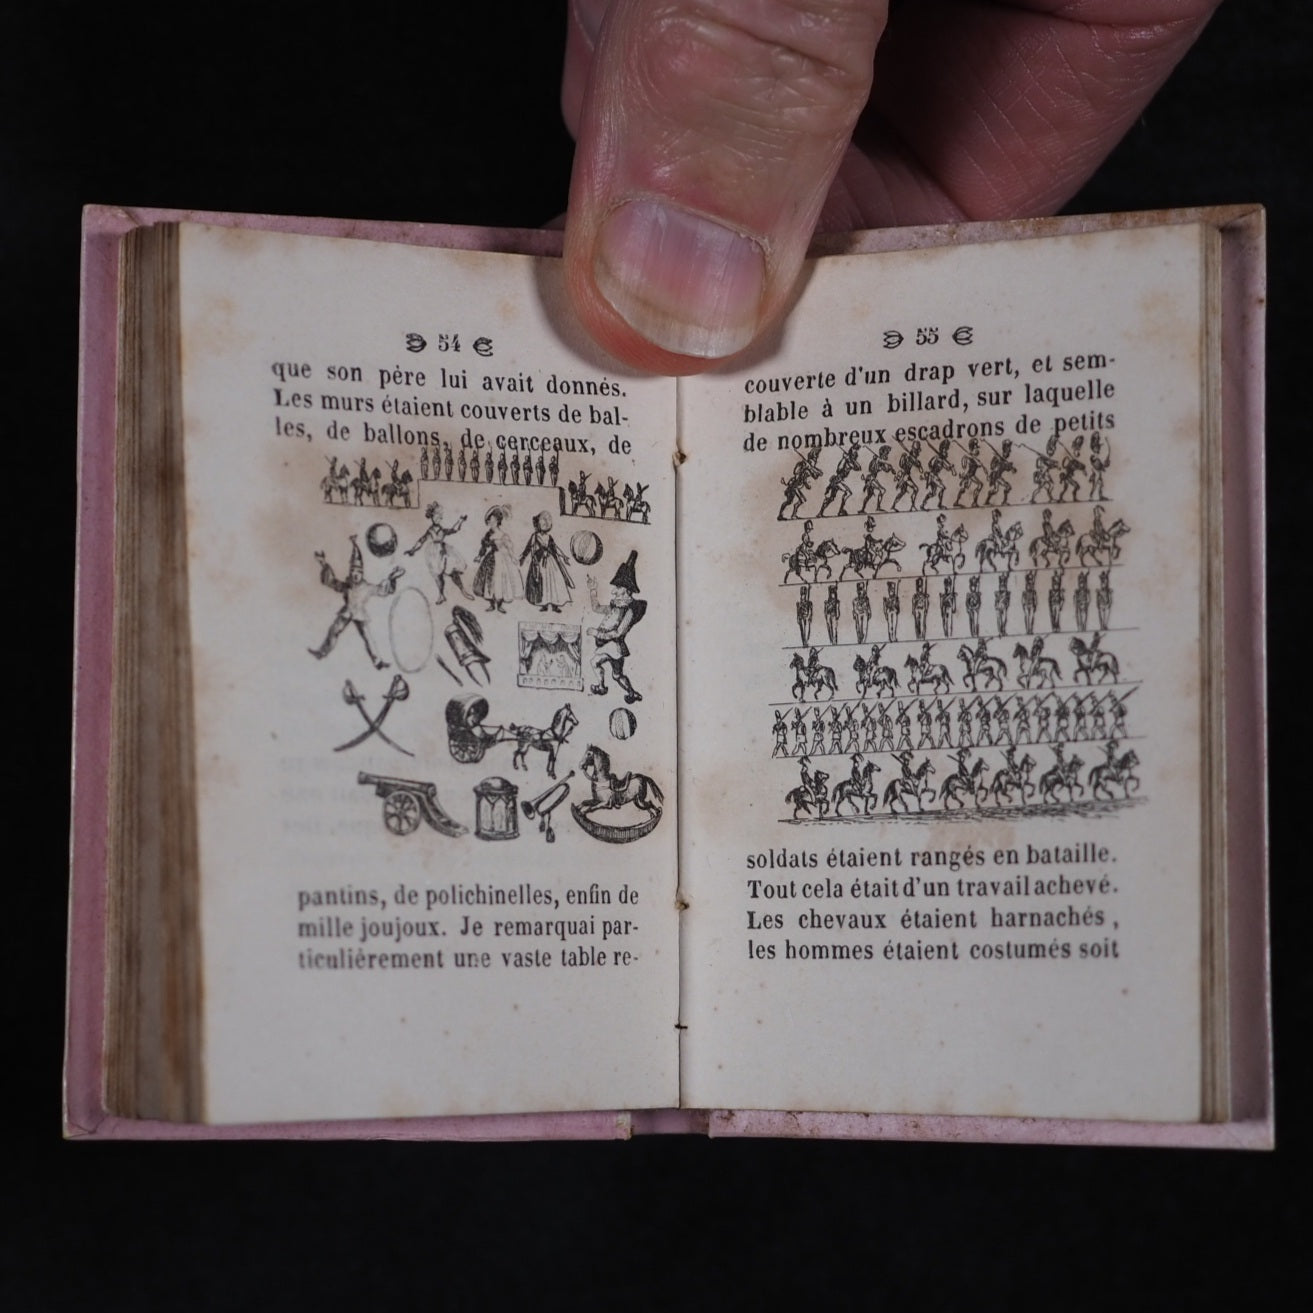 54
que son père lui avait donnés.
Les murs étaient couverts de bal-
les, de ballons, de cerceaux, de
pantins, de polichinelles, enfin de
mille joujoux. Je remarquai par-
ticulièrement une vaste table re-
55
couverte d'un drap vert, et sem-
blable à un billard, sur laquelle
de nombreux escadrons de petits
soldats étaient rangés en bataille.
Tout cela était d'un travail achevé.
Les chevaux étaient harnachés,
les hommes étaient costumés soit